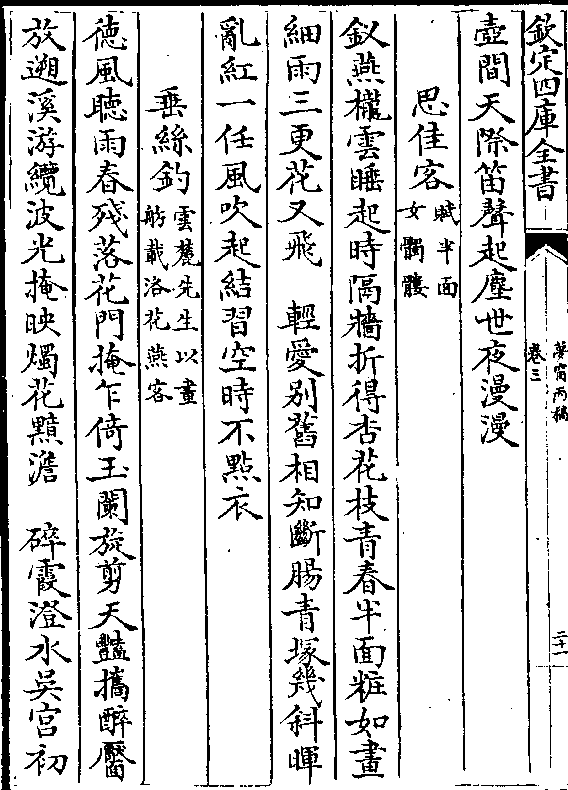 欽定四庫全書
夢窗丙稿
卷三
二十一
壺間天際笛聲起塵世夜漫漫
思佳客
賦半面
女髑髏
釵燕櫳雲睡起時隔牆折得杏花枝青春半面粧如畫
細雨三更花又飛　輕愛別舊相知斷腸青塚幾斜暉
亂紅一任風吹起結習空時不點衣
垂絲釣
雲麓先生以畫
舫載洛花燕客
徳風聽雨春殘落花門掩乍倚玉闌旋剪天豔攜醉靨
放遡溪游纜波光掩映燭花黯澹　碎霞澄水吳宮初